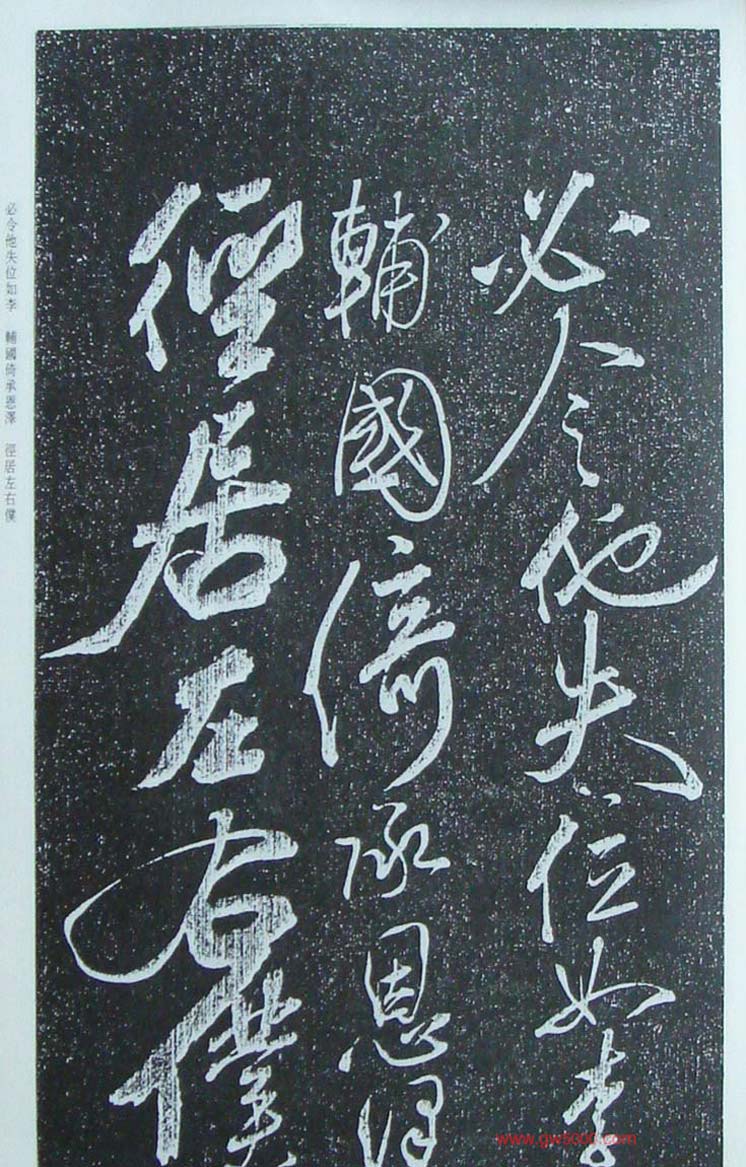 必令他失位如李
輔國倚承恩澤
徑居左右僕
必令他失位如李　輔國倚承恩澤　徑居左右僕
www.gw5000.com